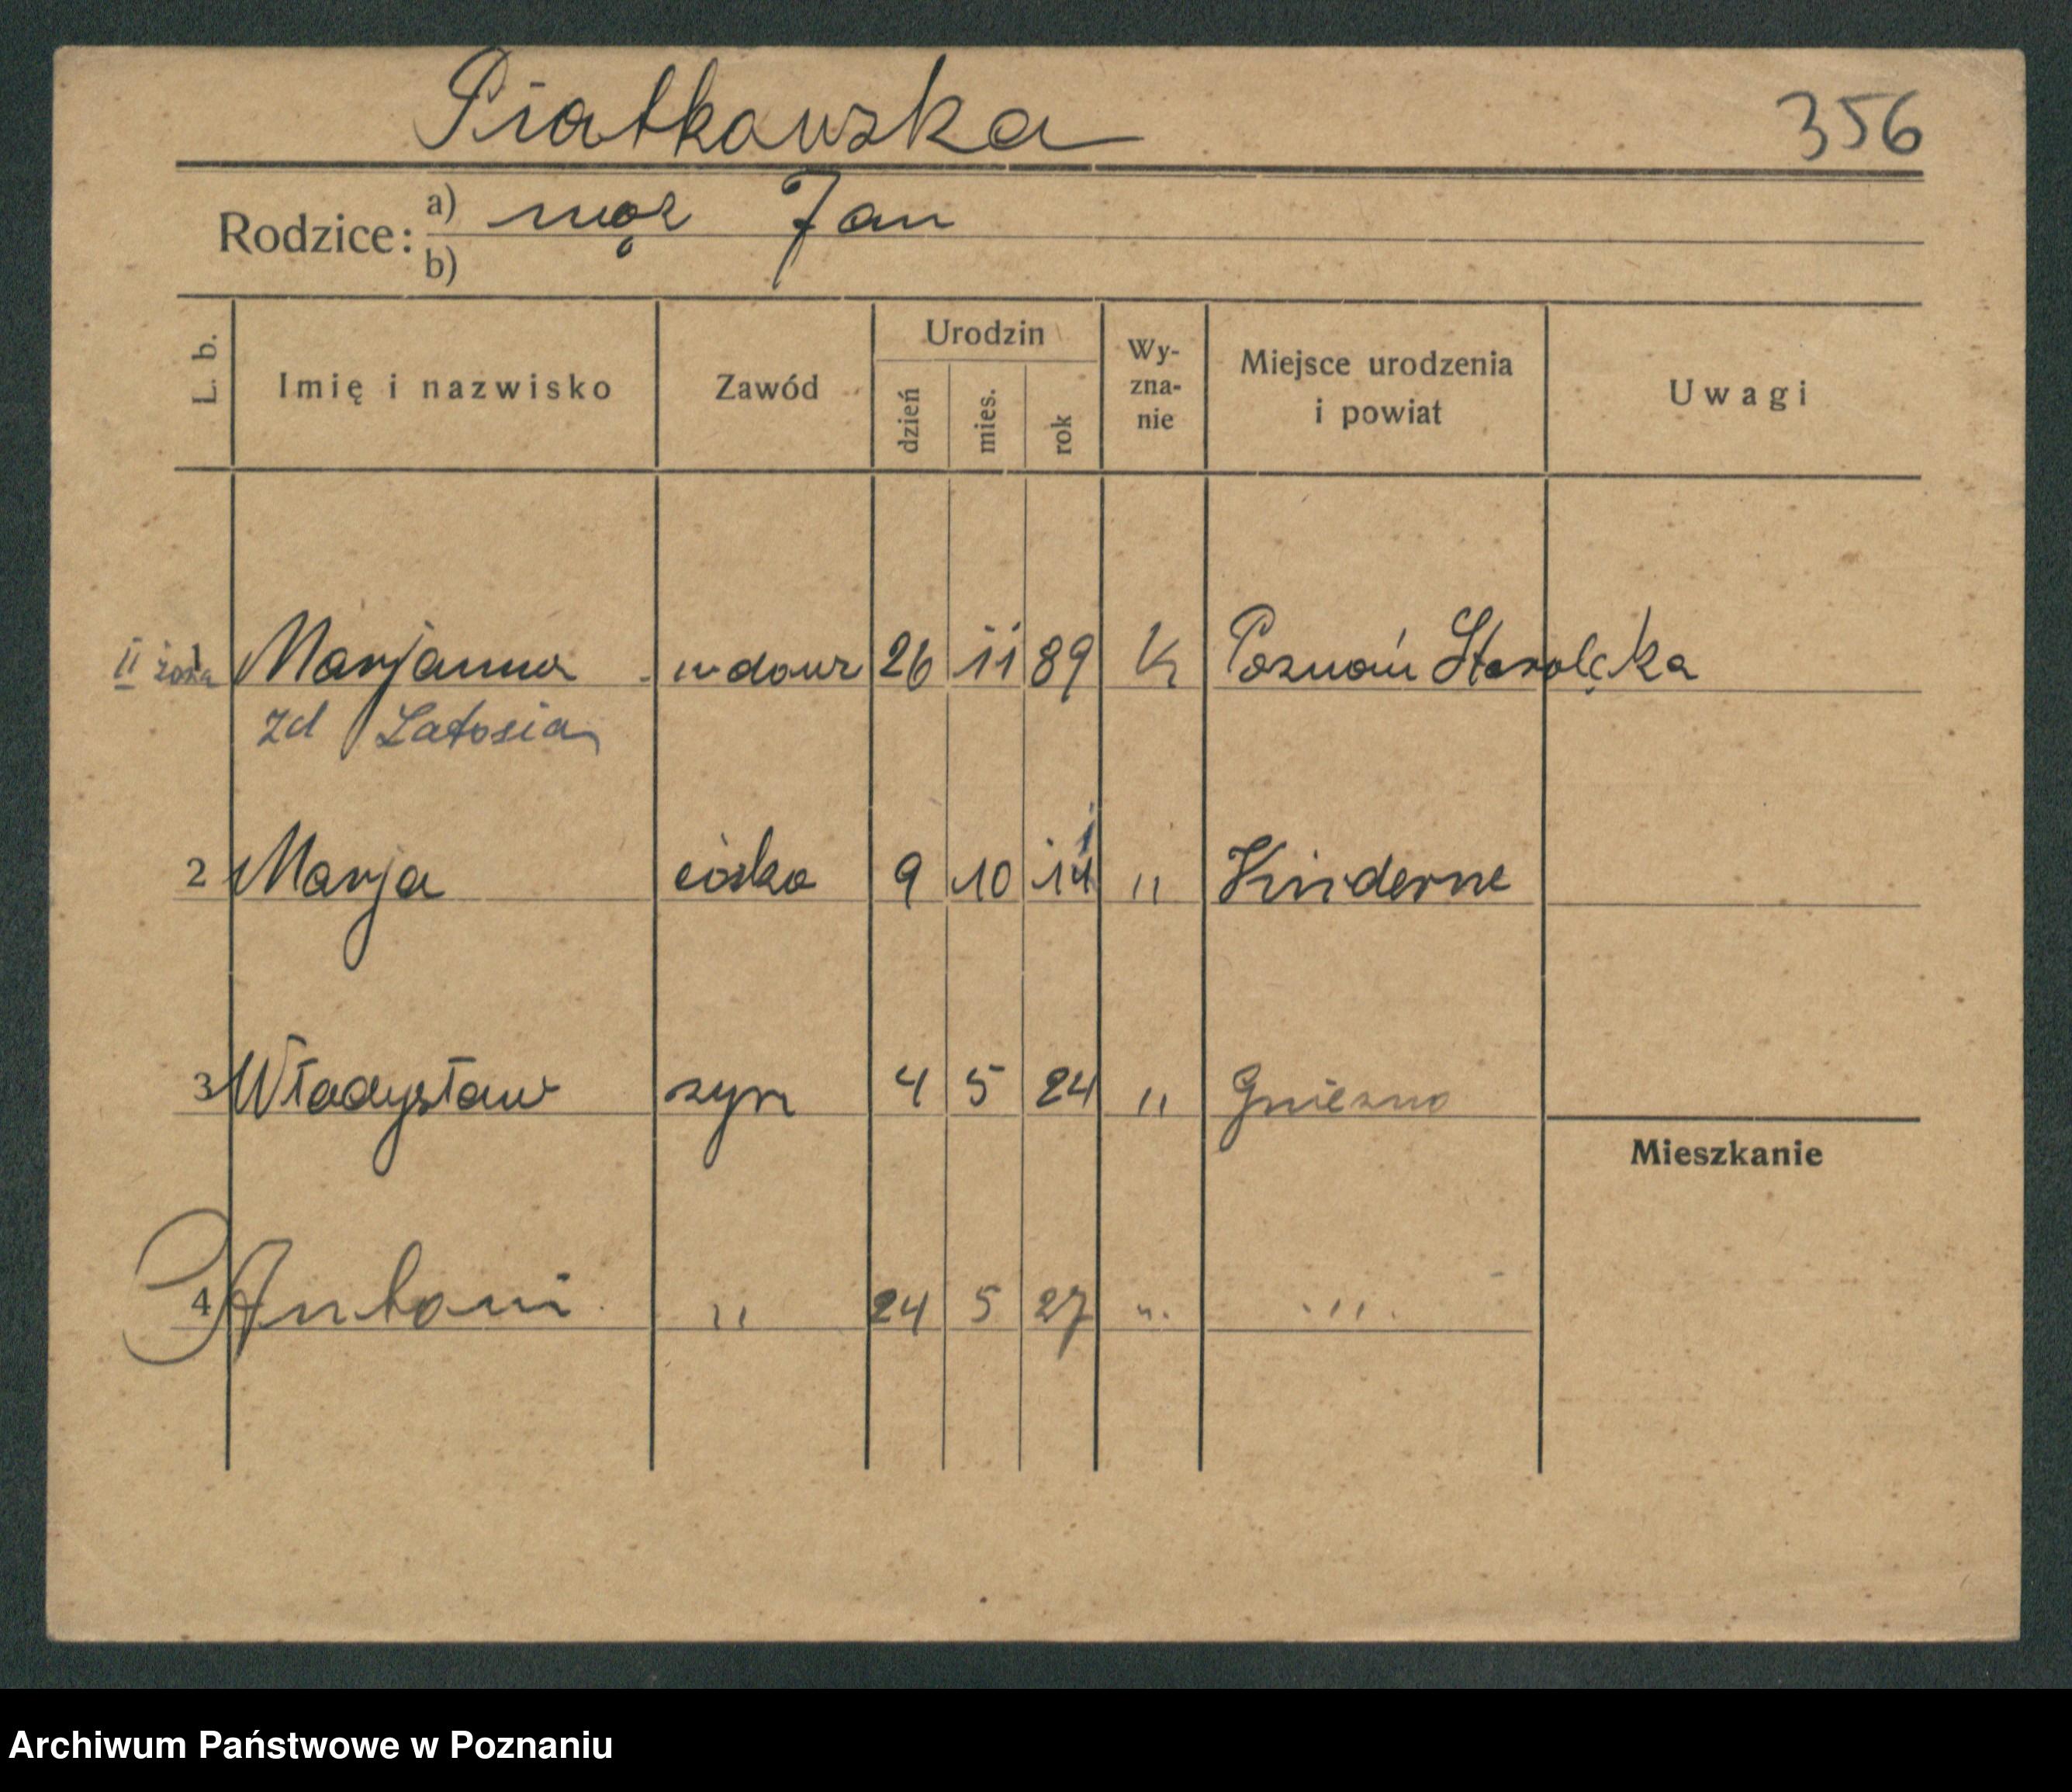 Piatkowska 356
Rodzice: a) mąż Jan
b)
L. b. Imię i nazwisko Zawód Urodzin dzień mies. rok Wyznanie Miejsce urodzenia i powiat Uwagi
II żona 1 Marjanna wdowa 26 11 89 K Poznań Starołęka
zd Latosia
2 Marja córka 9 10 " Kinderne
3 Władysław syn 4 5 24 " Gniezno
Mieszkanie
4 Antoni " 24 5 27 " "
Archiwum Państwowe w Poznaniu